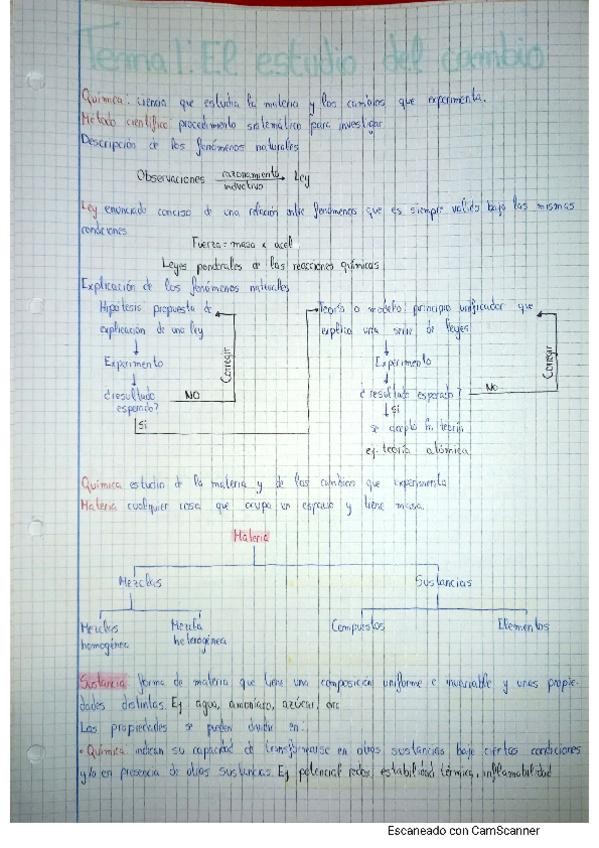 Tema 1: El estudio del cambio
Química: ciencia que estudia la materia y los cambios que experimenta.
Método científico: procedimiento sistemático para investigar
Descripción de los fenómenos naturales
Observaciones razonamiento inductivo Ley
Ley enunciado conciso de una relación entre fenómenos que es siempre valido bajo las mismas
condiciones
Fuerza = masa x acel
Leyes ponderales de las reacciones químicas
Explicación de los fenómenos naturales
Hipótesis propuesta de
explicación de una ley
Experimento
¿resultado
esperado?
NO
Corregir
Si
Teoría o modelo: principio unificador que
explica una serie de leyes
Experimento
¿resultado esperado?
No
Corregir
Si
se acepta la teoría
ej. teoría atómica
Química estudio de la materia y de los cambios que experimenta
Materia cualquier cosa que ocupa un espacio y tiene masa.
Materia
Mezclas Sustancias
Mezclas
homogénea
Mezcla
heterogénea
Compuestos
Elementos
Sustancia: forma de materia que tiene una composición uniforme e invariable y unas propie-
dades distintas. Ej agua, amoníaco, azúcar, oro
Las propiedades se pueden dividir en:
• Química: indican su capacidad de transformarse en otras sustancias bajo ciertas condiciones
y/o en presencia de otras sustancias. Ej potencial redox, estabilidad térmica, inflamabilidad
Escaneado con CamScanner